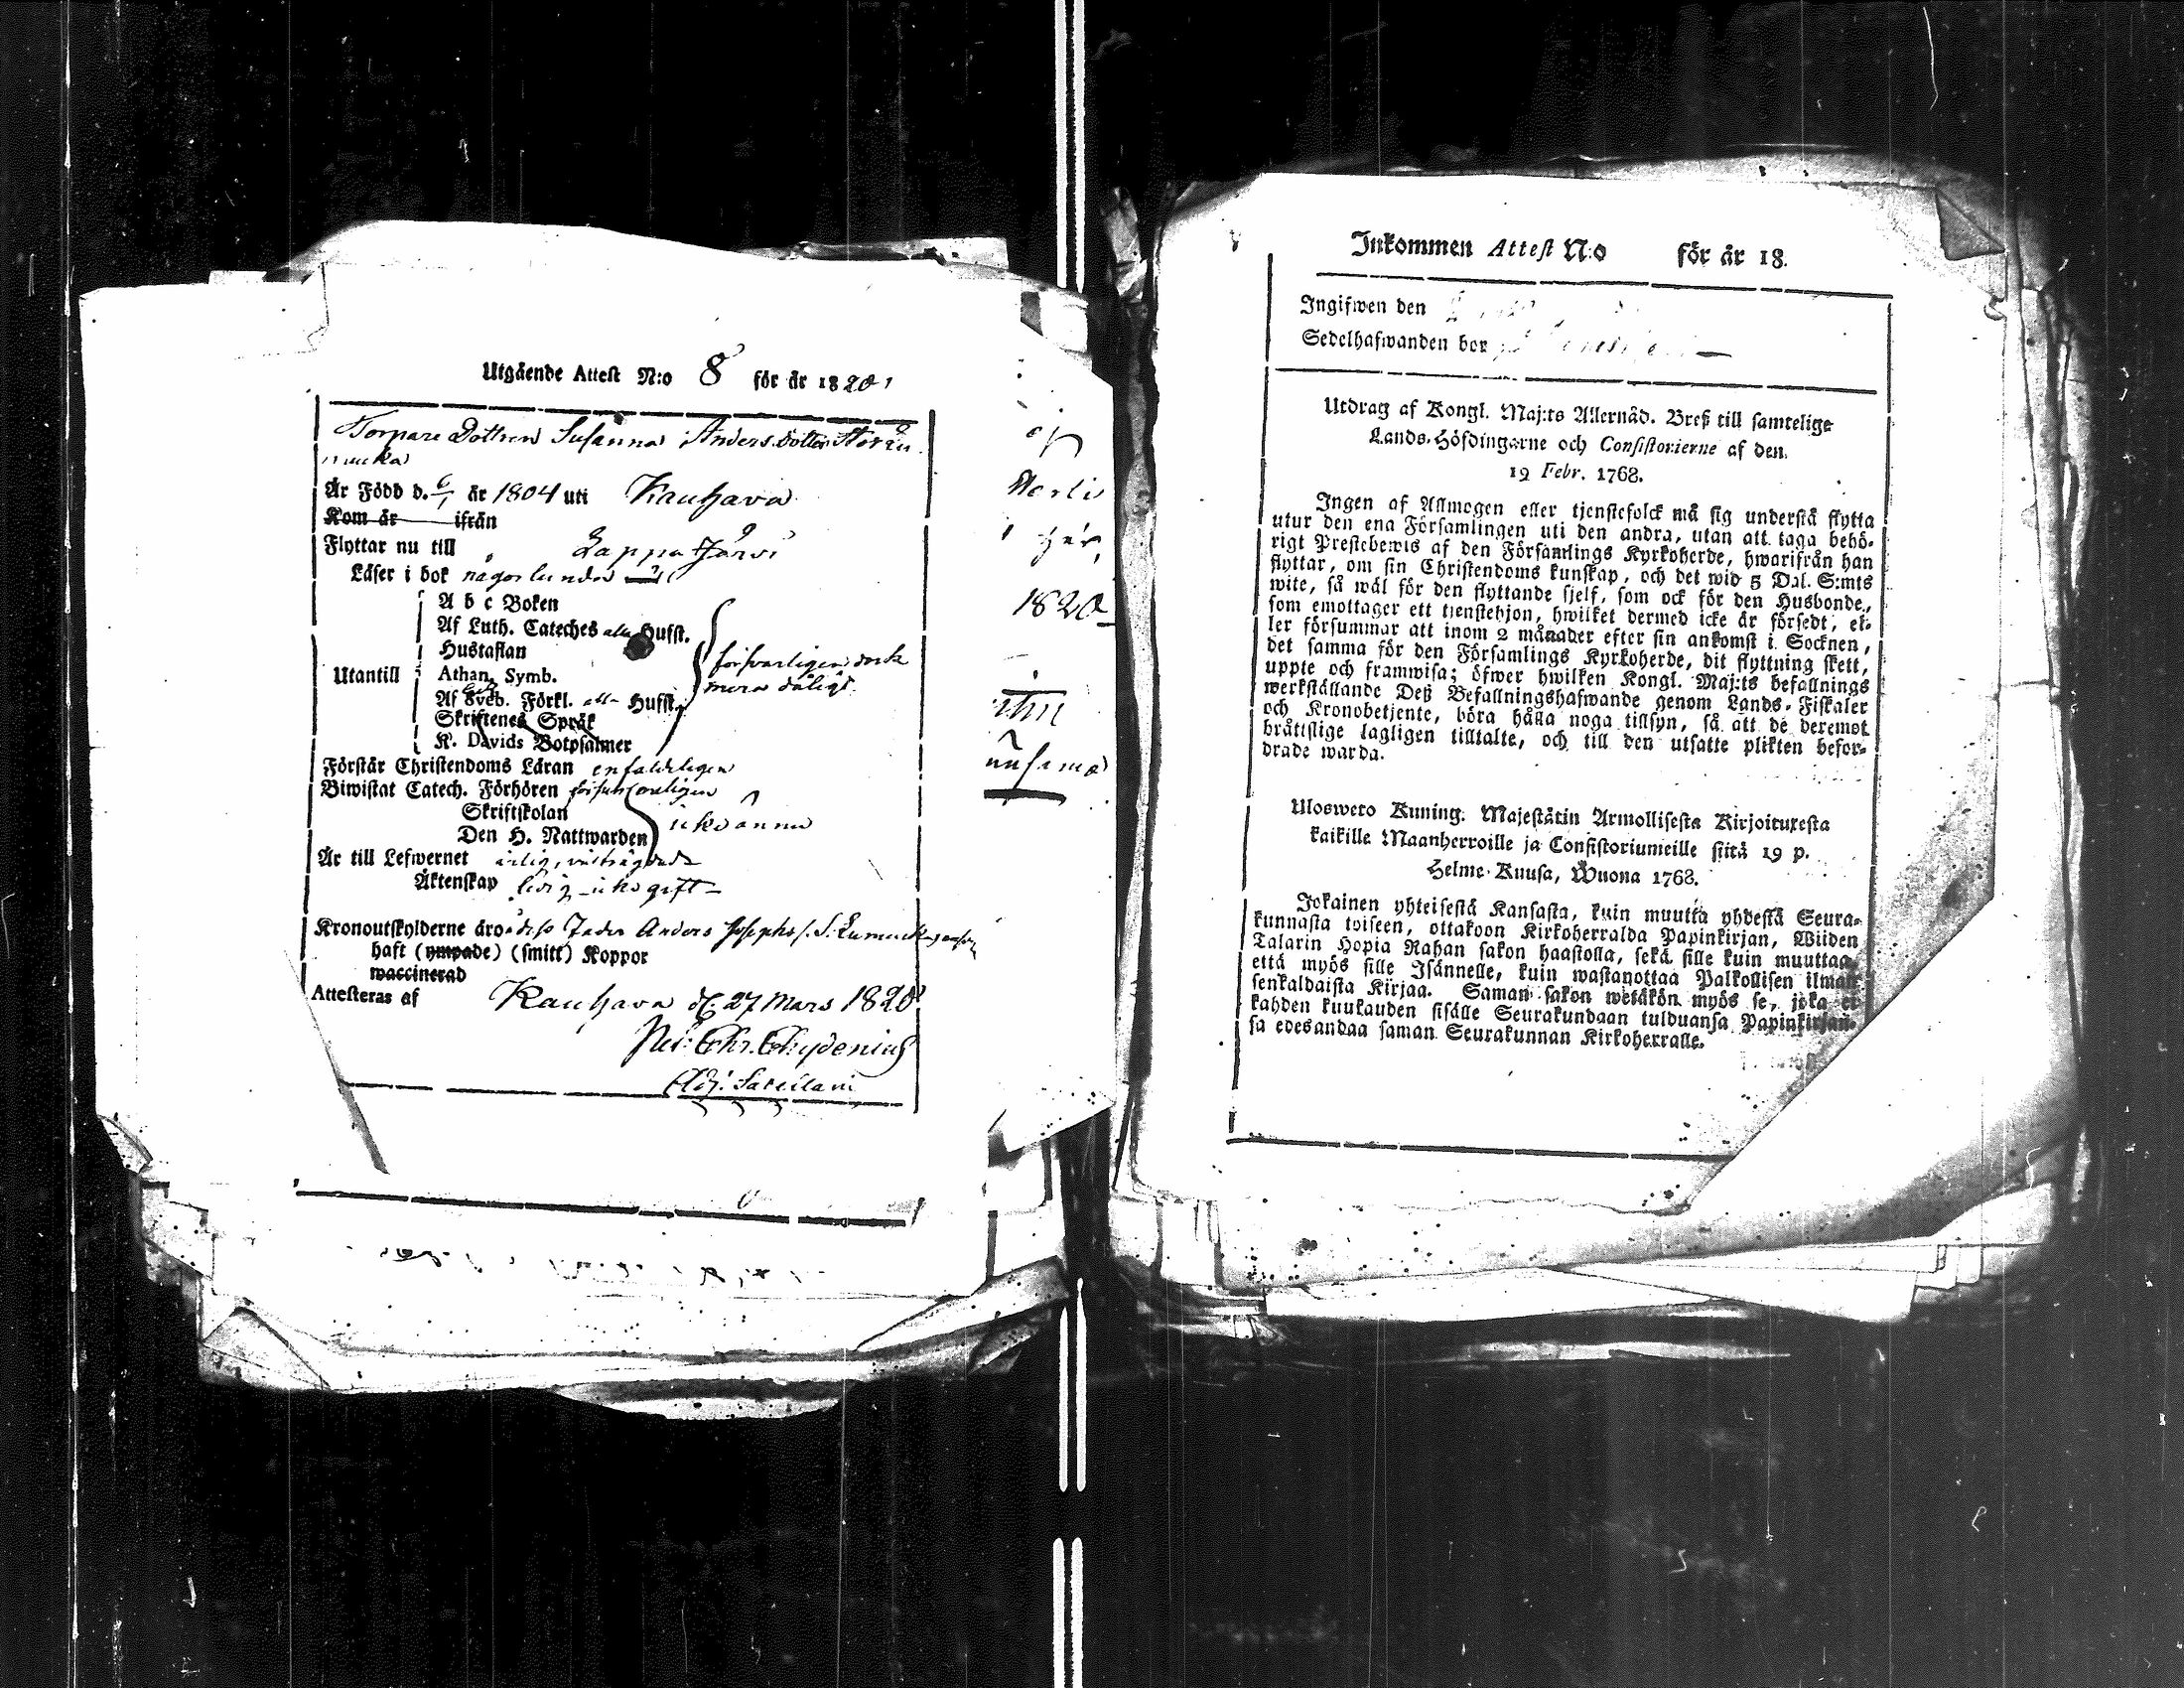 Utgående Attest N:o 8 för år 1820
Torpare Dottren Susanna Anders Dotter Storlu
mucka
Är Född d. 6/1 år 1804 uti Kauhava
Kom år ifrån
Flyttar nu till Lappajärvi
Läser i bok någorlunda
A b c Boken
Af Luth. Cateches alla Hufst.
Hustaflan
Utantill Athan. Symb.
Af Sveb. Förkl. alla Hufst.
Skriftenes Språk
K. Davids Botpsalmer
försvarligen dock
mera dåligt
Förstår Christendoms Läran enfaldeligen
Biwistat Catech. Förhören försvarligen
Skriftskolan
Den H. Nattwarden
icke ännu
Är till Lefwernet ärlig,
Äktenskap ledig icke gift
Kronoutskylderne äro Fader Anders Josephs S.
haft (ympade) (smitt) Koppor
waccinerad
Attesteras af Kauhava d. 27 Mars 1820
Chydenius
Adj. Sacellani
här
1820
Inkommen Attest N:o för år 18
Ingifwen den
Sedelhafwanden bor
Utdrag af Kongl. Maj:ts Allernåd. Bref till samtelige
Lands-Höfdingarne och Consistorierne af den
19 Febr. 1768.
Ingen af Allmogen eller tjenstefolck må sig understå flytta
utur den ena Församlingen uti den andra, utan att taga behö-
rigt Prestebewis af den Församlings Kyrkoherde, hwarifrån han
flyttar, om sin Christendoms kunskap, och det wid 5 Dal. S:mts
wite, så wäl för den flyttande sjelf, som ock för den Husbonde,
som emottager ett tjenstehjon, hwilket dermed icke är försedt, el-
ler försummar att inom 2 månader efter sin ankomst i Socknen,
det samma för den Församlings Kyrkoherde, dit flyttning skett,
uppte och framwisa; öfwer hwilken Kongl. Maj:ts befallnings
werkställande Deß Befallningshafwande genom Lands-Fiskaler
och Kronobetjente, böra hålla noga tillsyn, så att de deremot
bråttslige lagligen tilltalte, och till den utsatte plikten befor-
drade warda.
Ulosweto Kuning. Majestätin Armollisesta Kirjoituxesta
kaikille Maanherroille ja Consistoriumeille siitä 19 p.
Helme-Kuusa, Wuona 1768.
Jokainen yhteisestä Kansasta, kuin muutta yhdestä Seura-
kunnasta toiseen, ottakoon Kirkoherralda Papinkirjan, Wiiden
Talarin Hopia Rahan sakon haastolla, sekä sille kuin muuttaa,
että myös sille Isännelle, kuin wastanottaa Palkollisen ilman
senkaldaista Kirjaa. Saman sakon wetäkön myös se, joka ei
kahden kuukauden sisälle Seurakundaan tulduansa Papinkirjan-
sa edesandaa saman Seurakunnan Kirkoherralle.